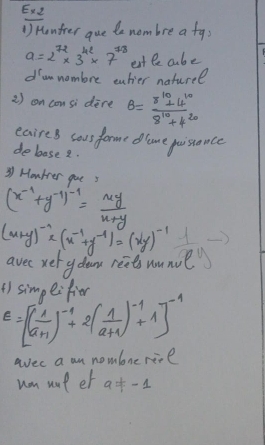 Ex2
1) Montrer que le nombre a tq:
a = 2^72 × 3^42 × 7^78 est le cube
d'un nombre entier naturel
2) on considère B = (8^10 + 4^10) / (8^10 + 4^20)
écrire B sous forme d'une puissance
de base 2.
3) Montrer que :
(x^-1 + y^-1)^-1 = xy / (x+y)
(x+y)^-1 × (x^-1 + y^-1) = (xy)^-1
avec x et y deux réels non nul
4) simplifier
E = [(1/(a+1))^-1 + 2(1/(a+1))^-1 + 1]^-1
avec a un nombre réel
non nul et a ≠ -1